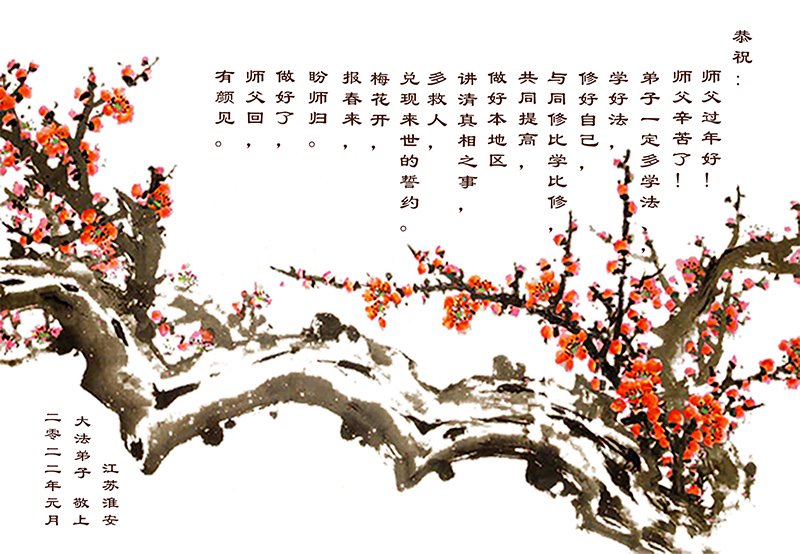 恭祝：
师父过年好！
师父辛苦了！
弟子一定多学法、
学好法，
修好自己，
与同修比学比修，
共同提高，
做好本地区
讲清真相之事，
多救人，
兑现来世的誓约。
梅花开，
报春来，
盼师归。
做好了，
师父回，
有颜见。
江苏淮安
大法弟子 敬上
二零二二年元月